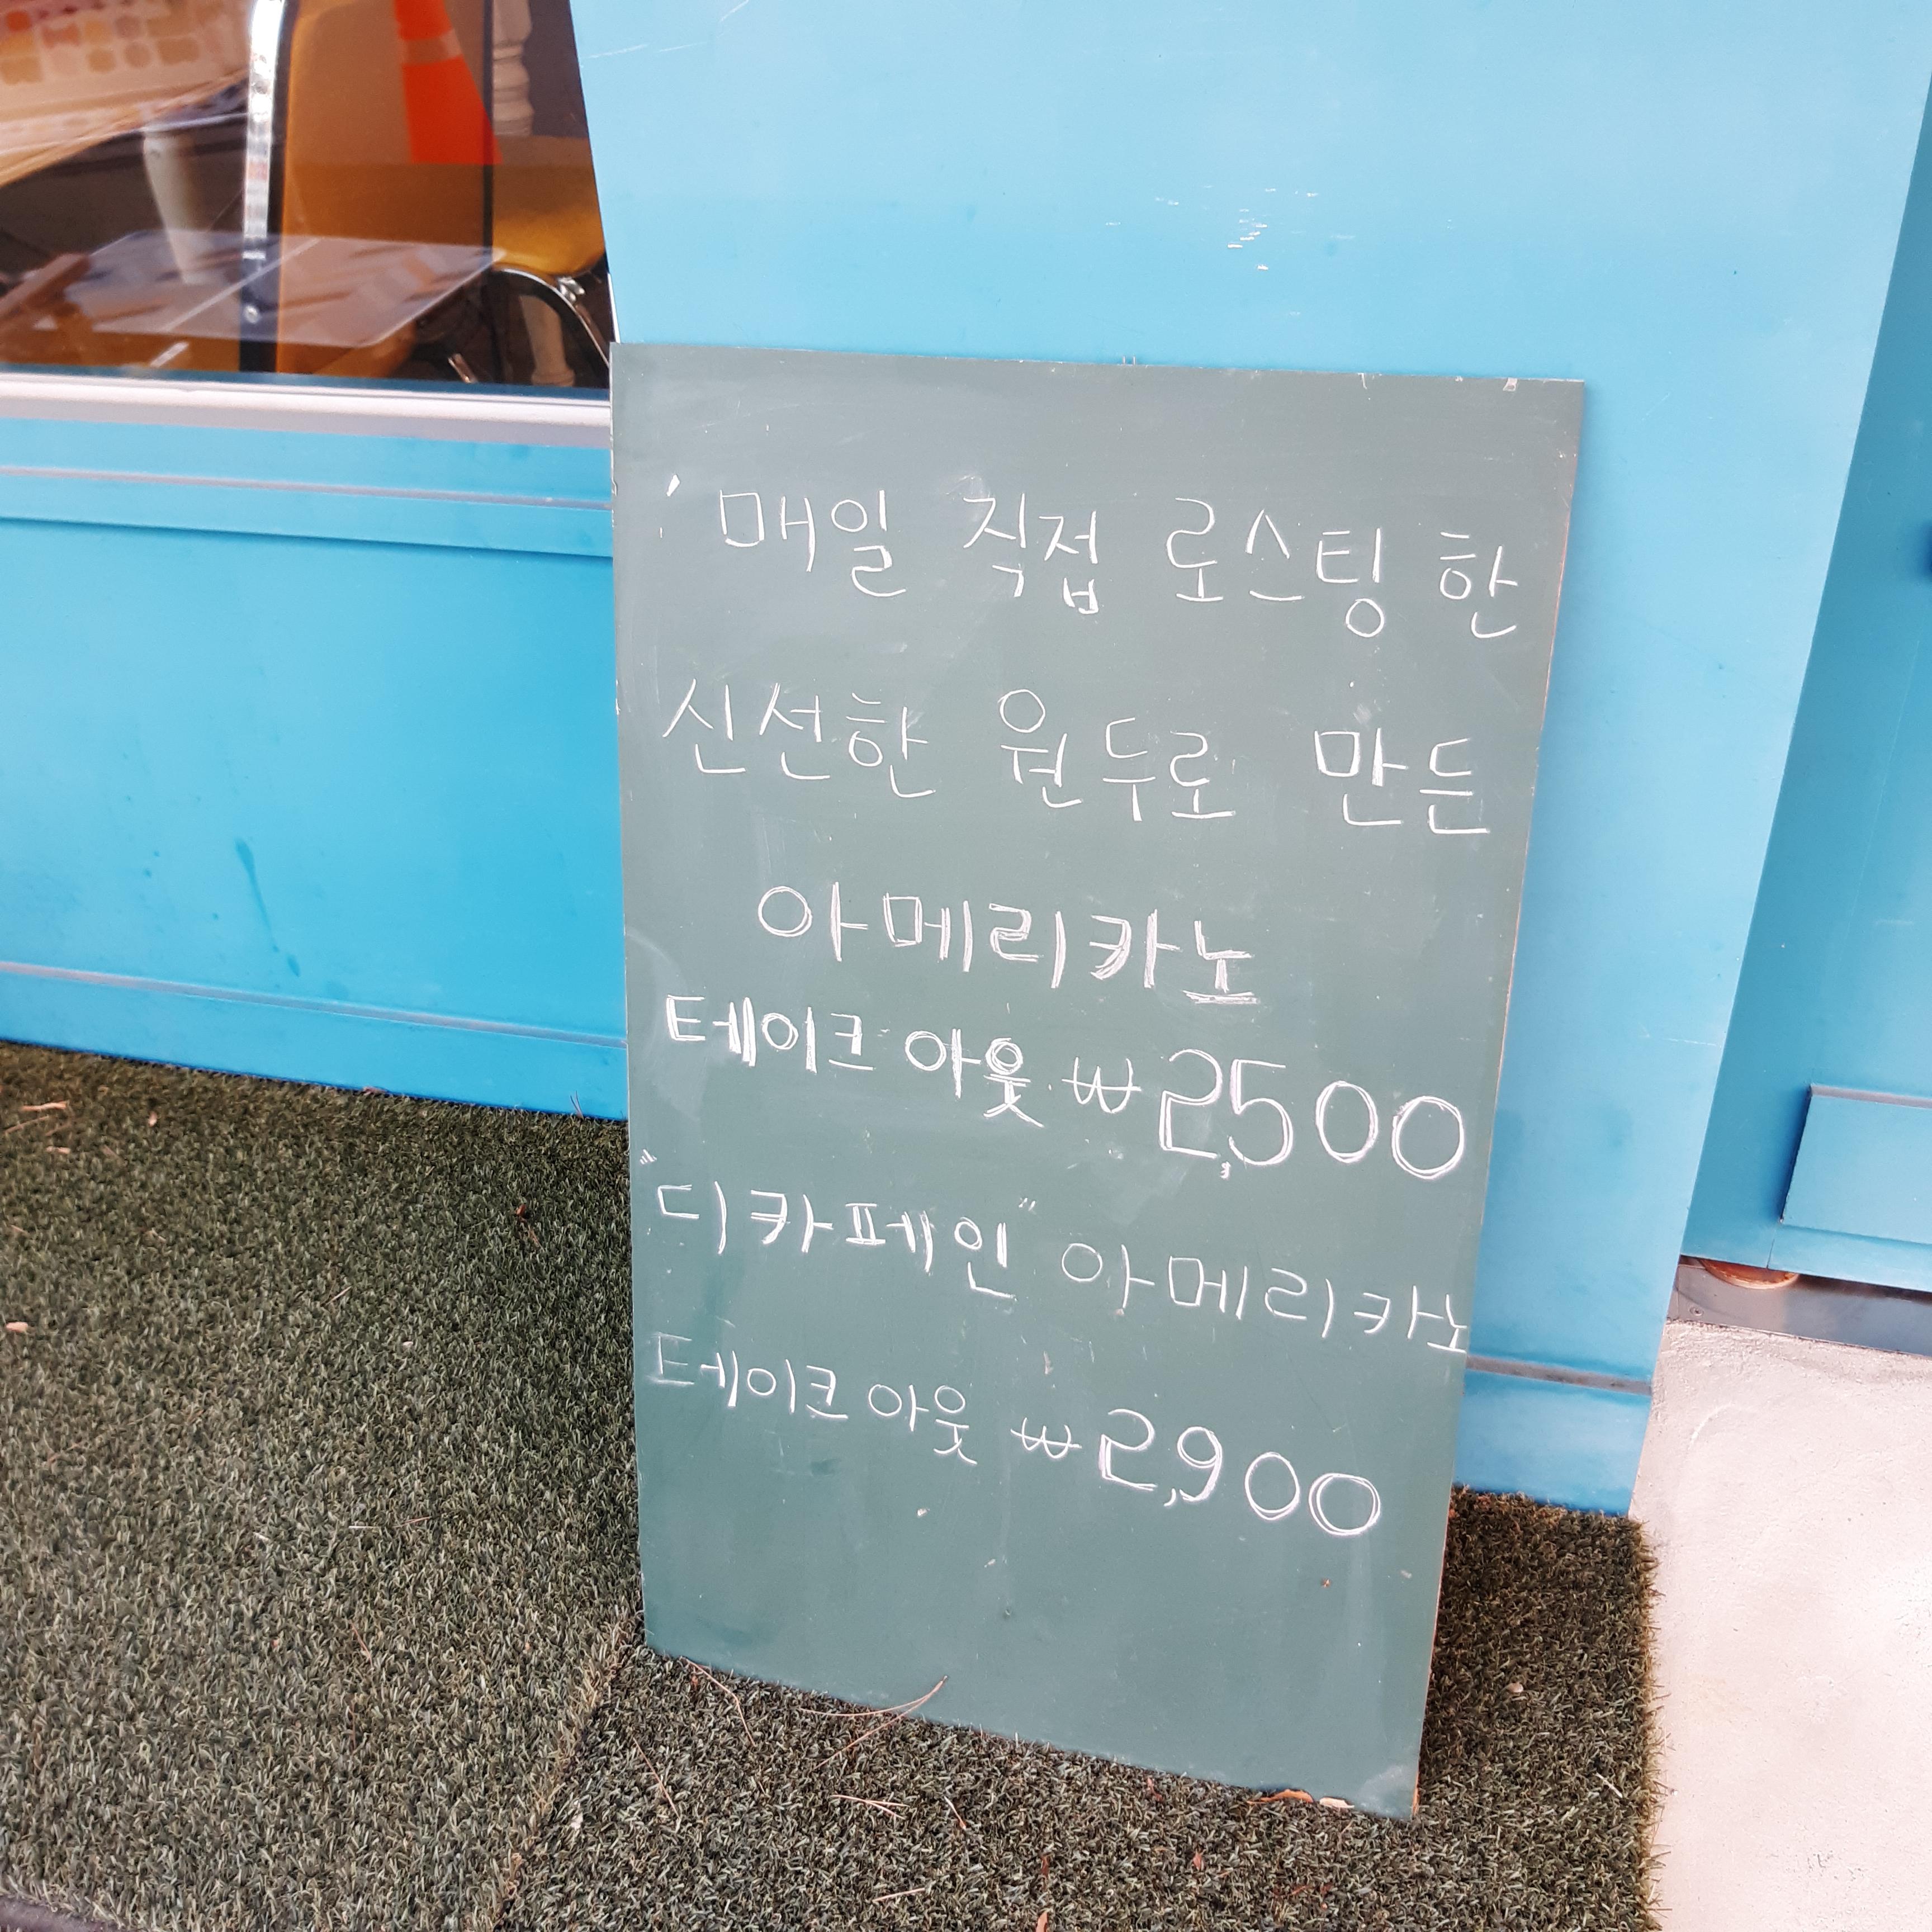 매일 직접 로스팅 한
신선한 원두로 만든
아메리카노
테이크 아웃 ₩2,500
"디카페인" 아메리카노
테이크 아웃 ₩2,900